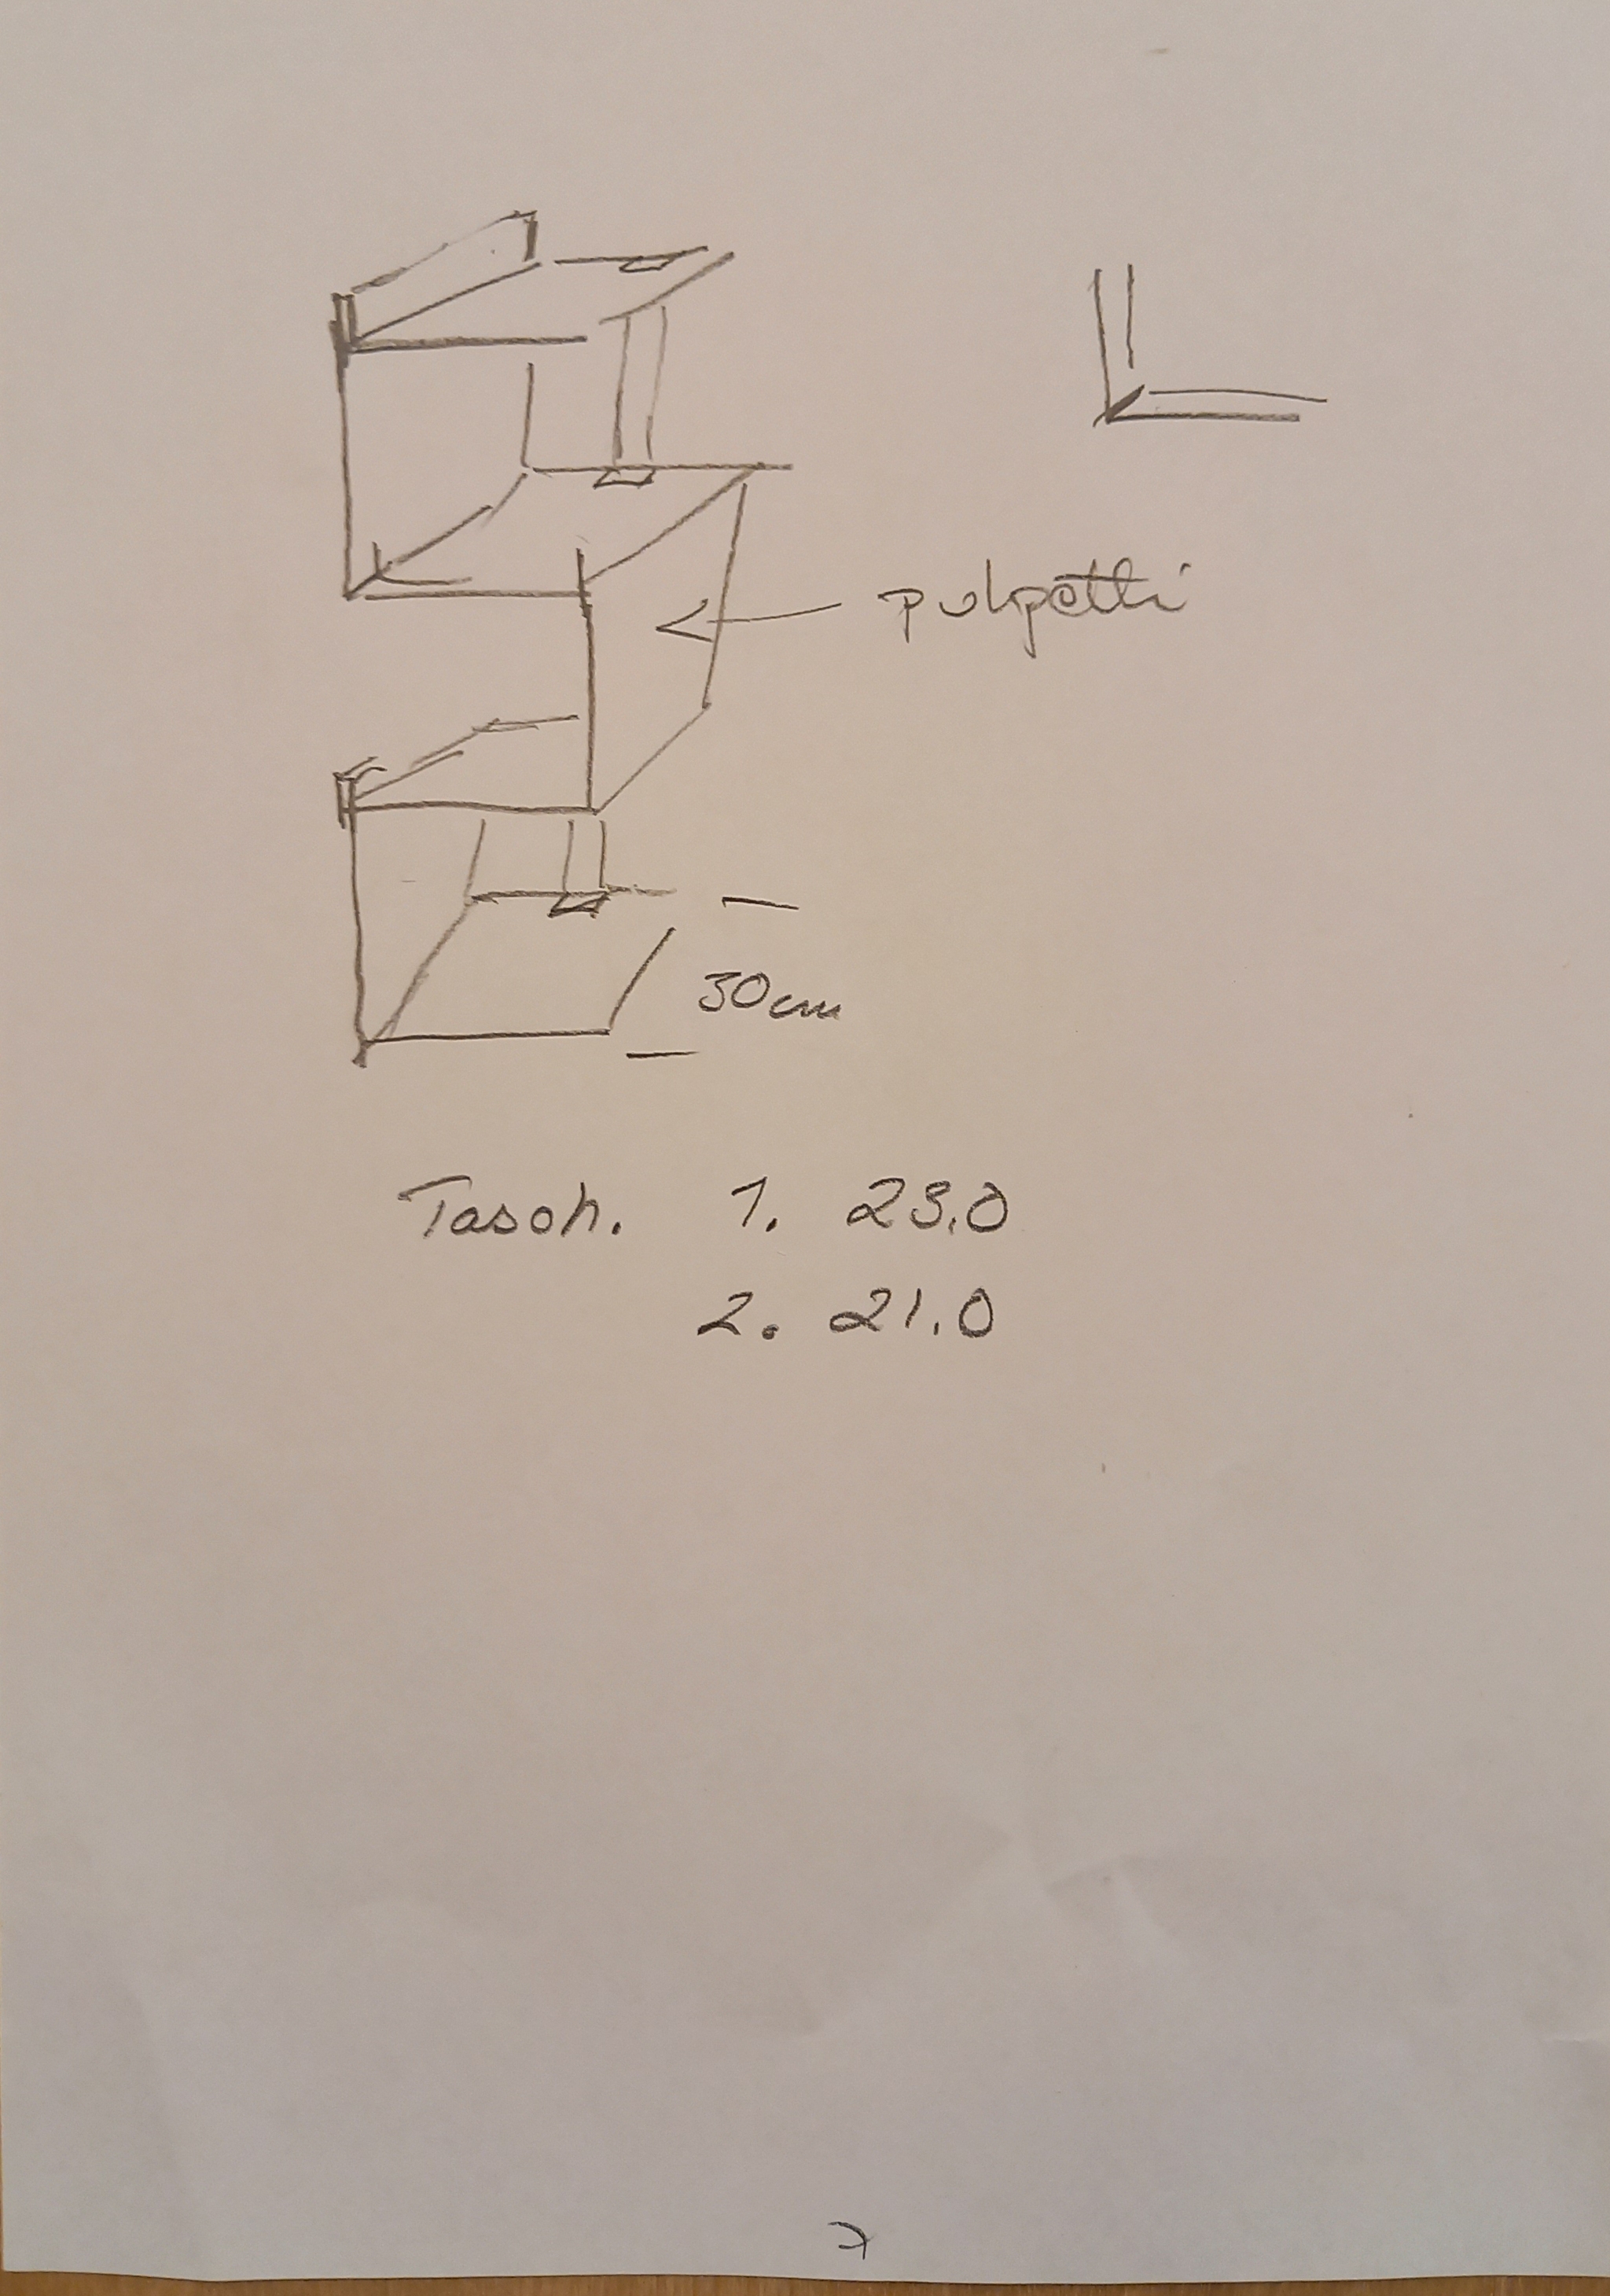 pulpetti
30cm
Tasoh. 1. 23.0
2. 21.0
7